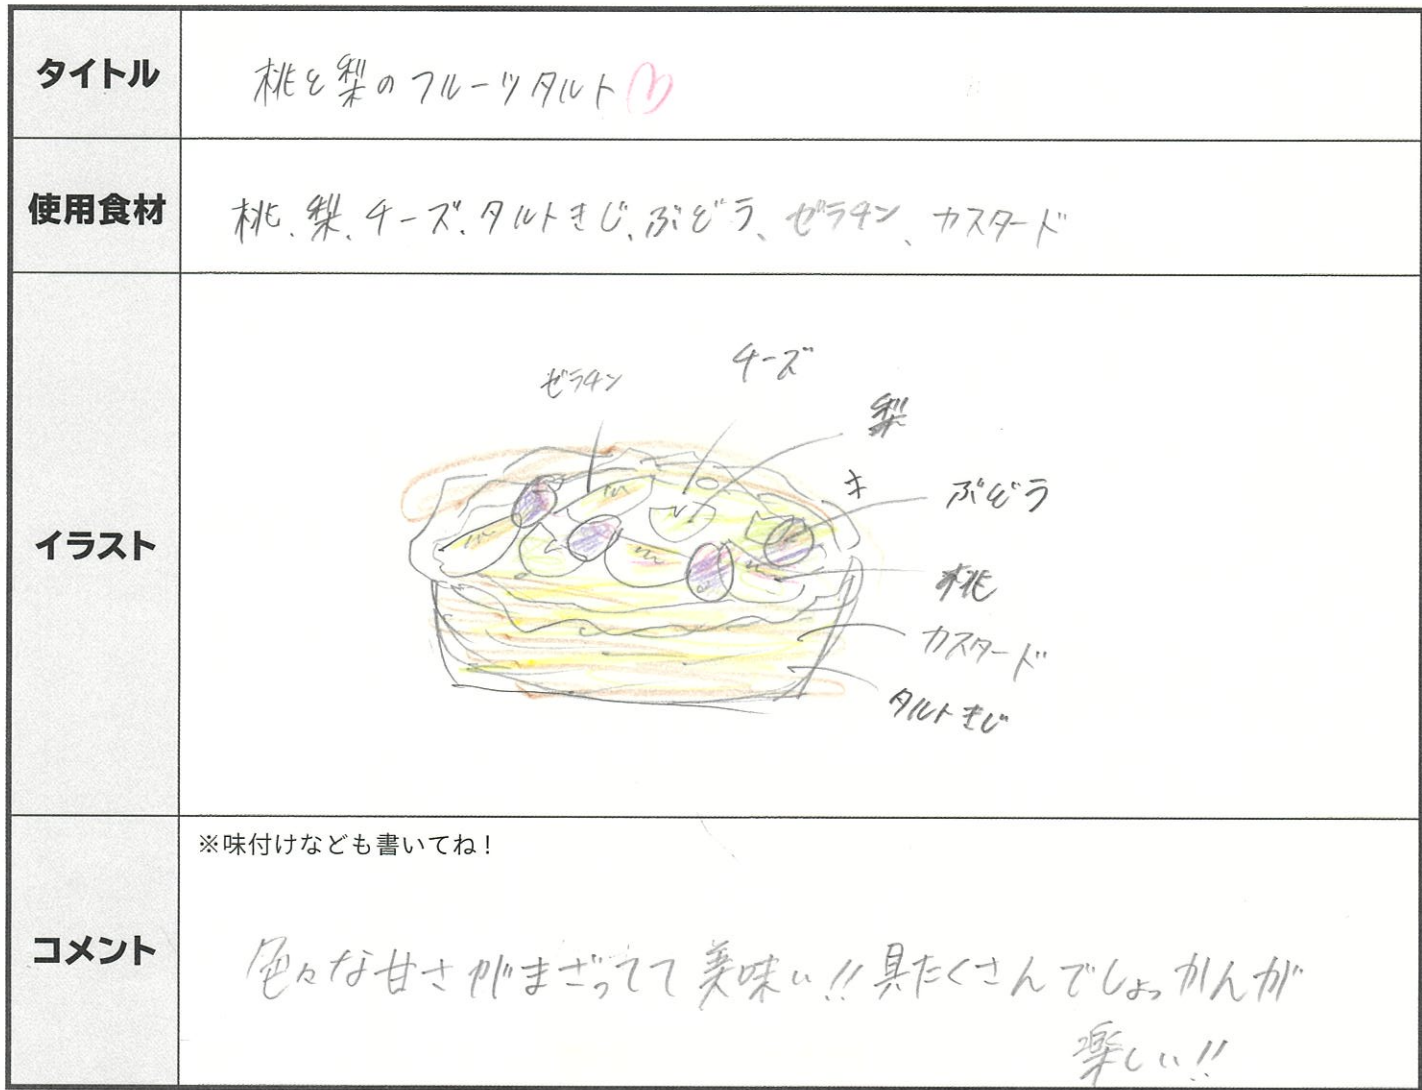 タイトル
桃と梨のフルーツタルト♡
使用食材
桃、梨、チーズ、タルトきじ、ぶどう、ゼラチン、カスタード
イラスト
チーズ
ゼラチン
梨
ぶどう
桃
カスタード
タルトきじ
コメント
※味付けなども書いてね！
色々な甘さがまざってて美味い!!具たくさんでしょっかんが
楽しい!!